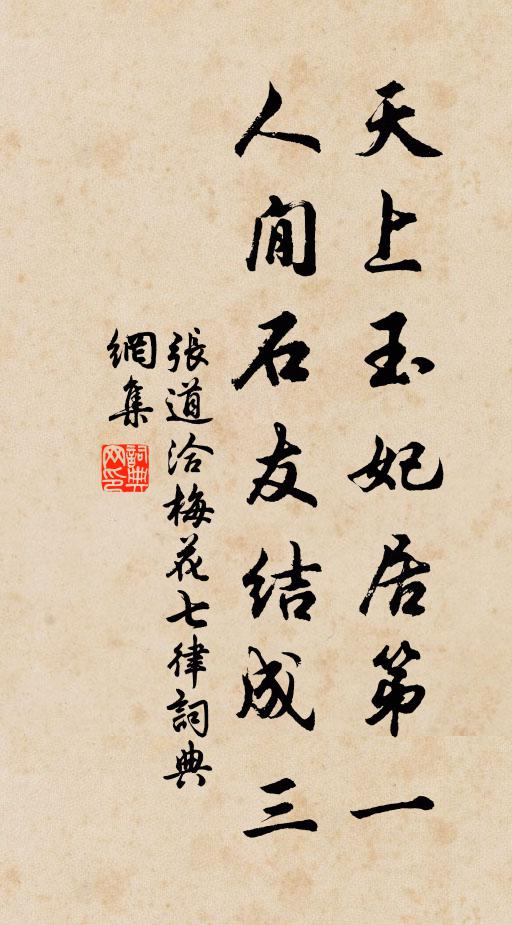 天上玉妃居第一
人間石友结成三
張道洽梅花七律詞典
網集
詞典
网印